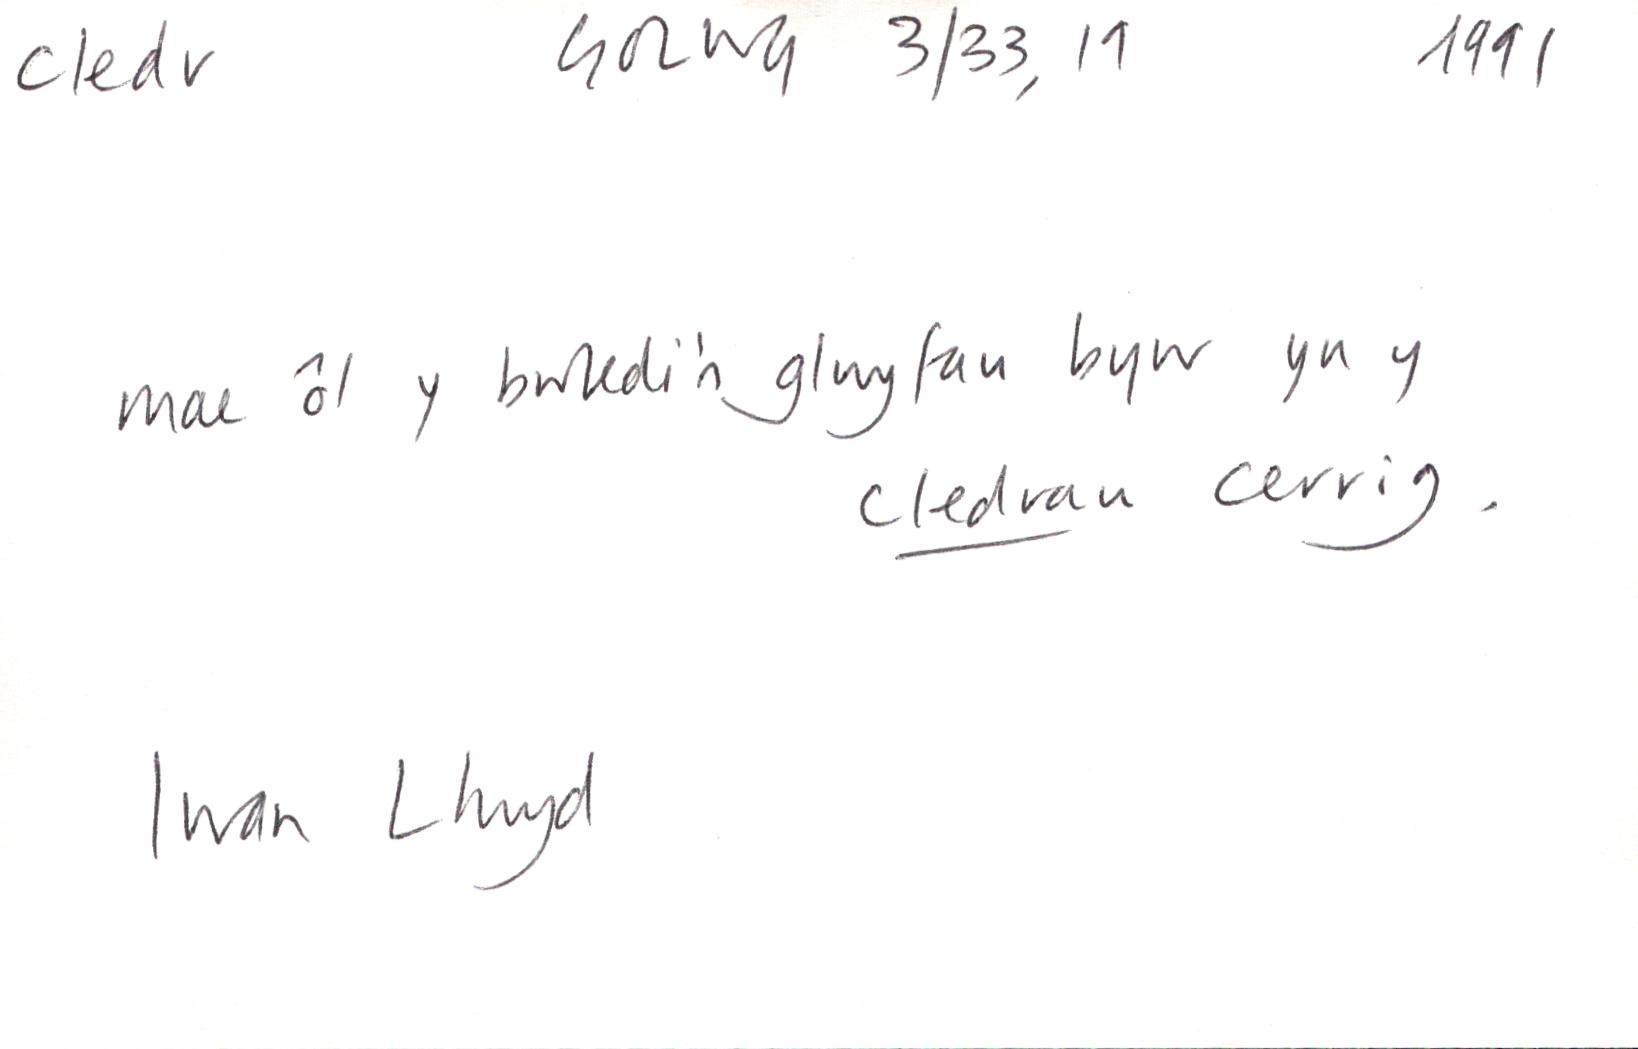 cledr GOLWG 3/33, 19 1991
mae ôl y bwledi'n glwyfau byw yn y
cledrau cerrig.
Iwan Llwyd